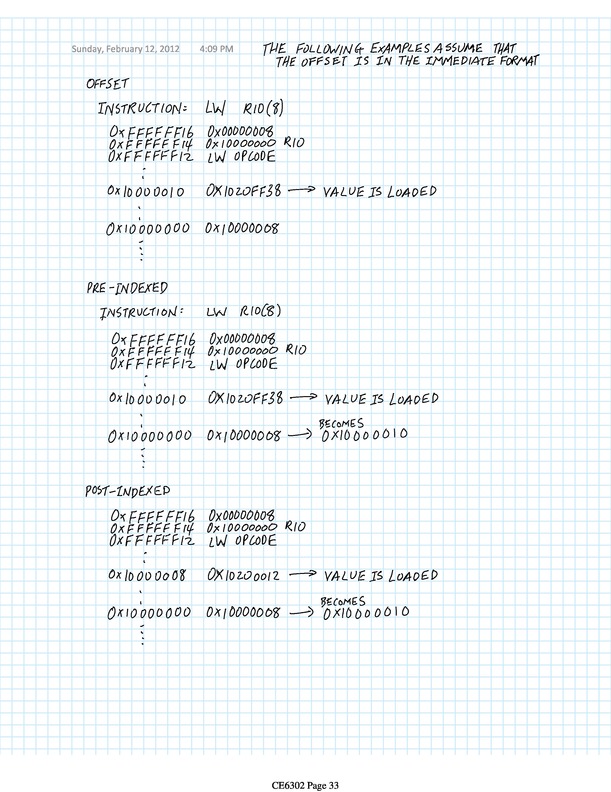 Sunday, February 12, 2012 4:09 PM
THE FOLLOWING EXAMPLES ASSUME THAT
THE OFFSET IS IN THE IMMEDIATE FORMAT
OFFSET
INSTRUCTION: LW R10(8)
0xFFFFFF16 0x00000008
0xFFFFFF14 0x10000000 R10
0xFFFFFF12 LW OPCODE
0x10000010 0X1020FF38 → VALUE IS LOADED
0x10000000 0x10000008
PRE-INDEXED
INSTRUCTION: LW R10(8)
0xFFFFFF16 0x00000008
0xFFFFFF14 0x10000000 R10
0xFFFFFF12 LW OPCODE
0x10000010 0X1020FF38 → VALUE IS LOADED
BECOMES
0x10000000 0x10000008 → 0x10000010
POST-INDEXED
0xFFFFFF16 0x00000008
0xFFFFFF14 0x10000000 R10
0xFFFFFF12 LW OPCODE
0x10000008 0X10200012 → VALUE IS LOADED
BECOMES
0x10000000 0x10000008 → 0x10000010
CE6302 Page 33